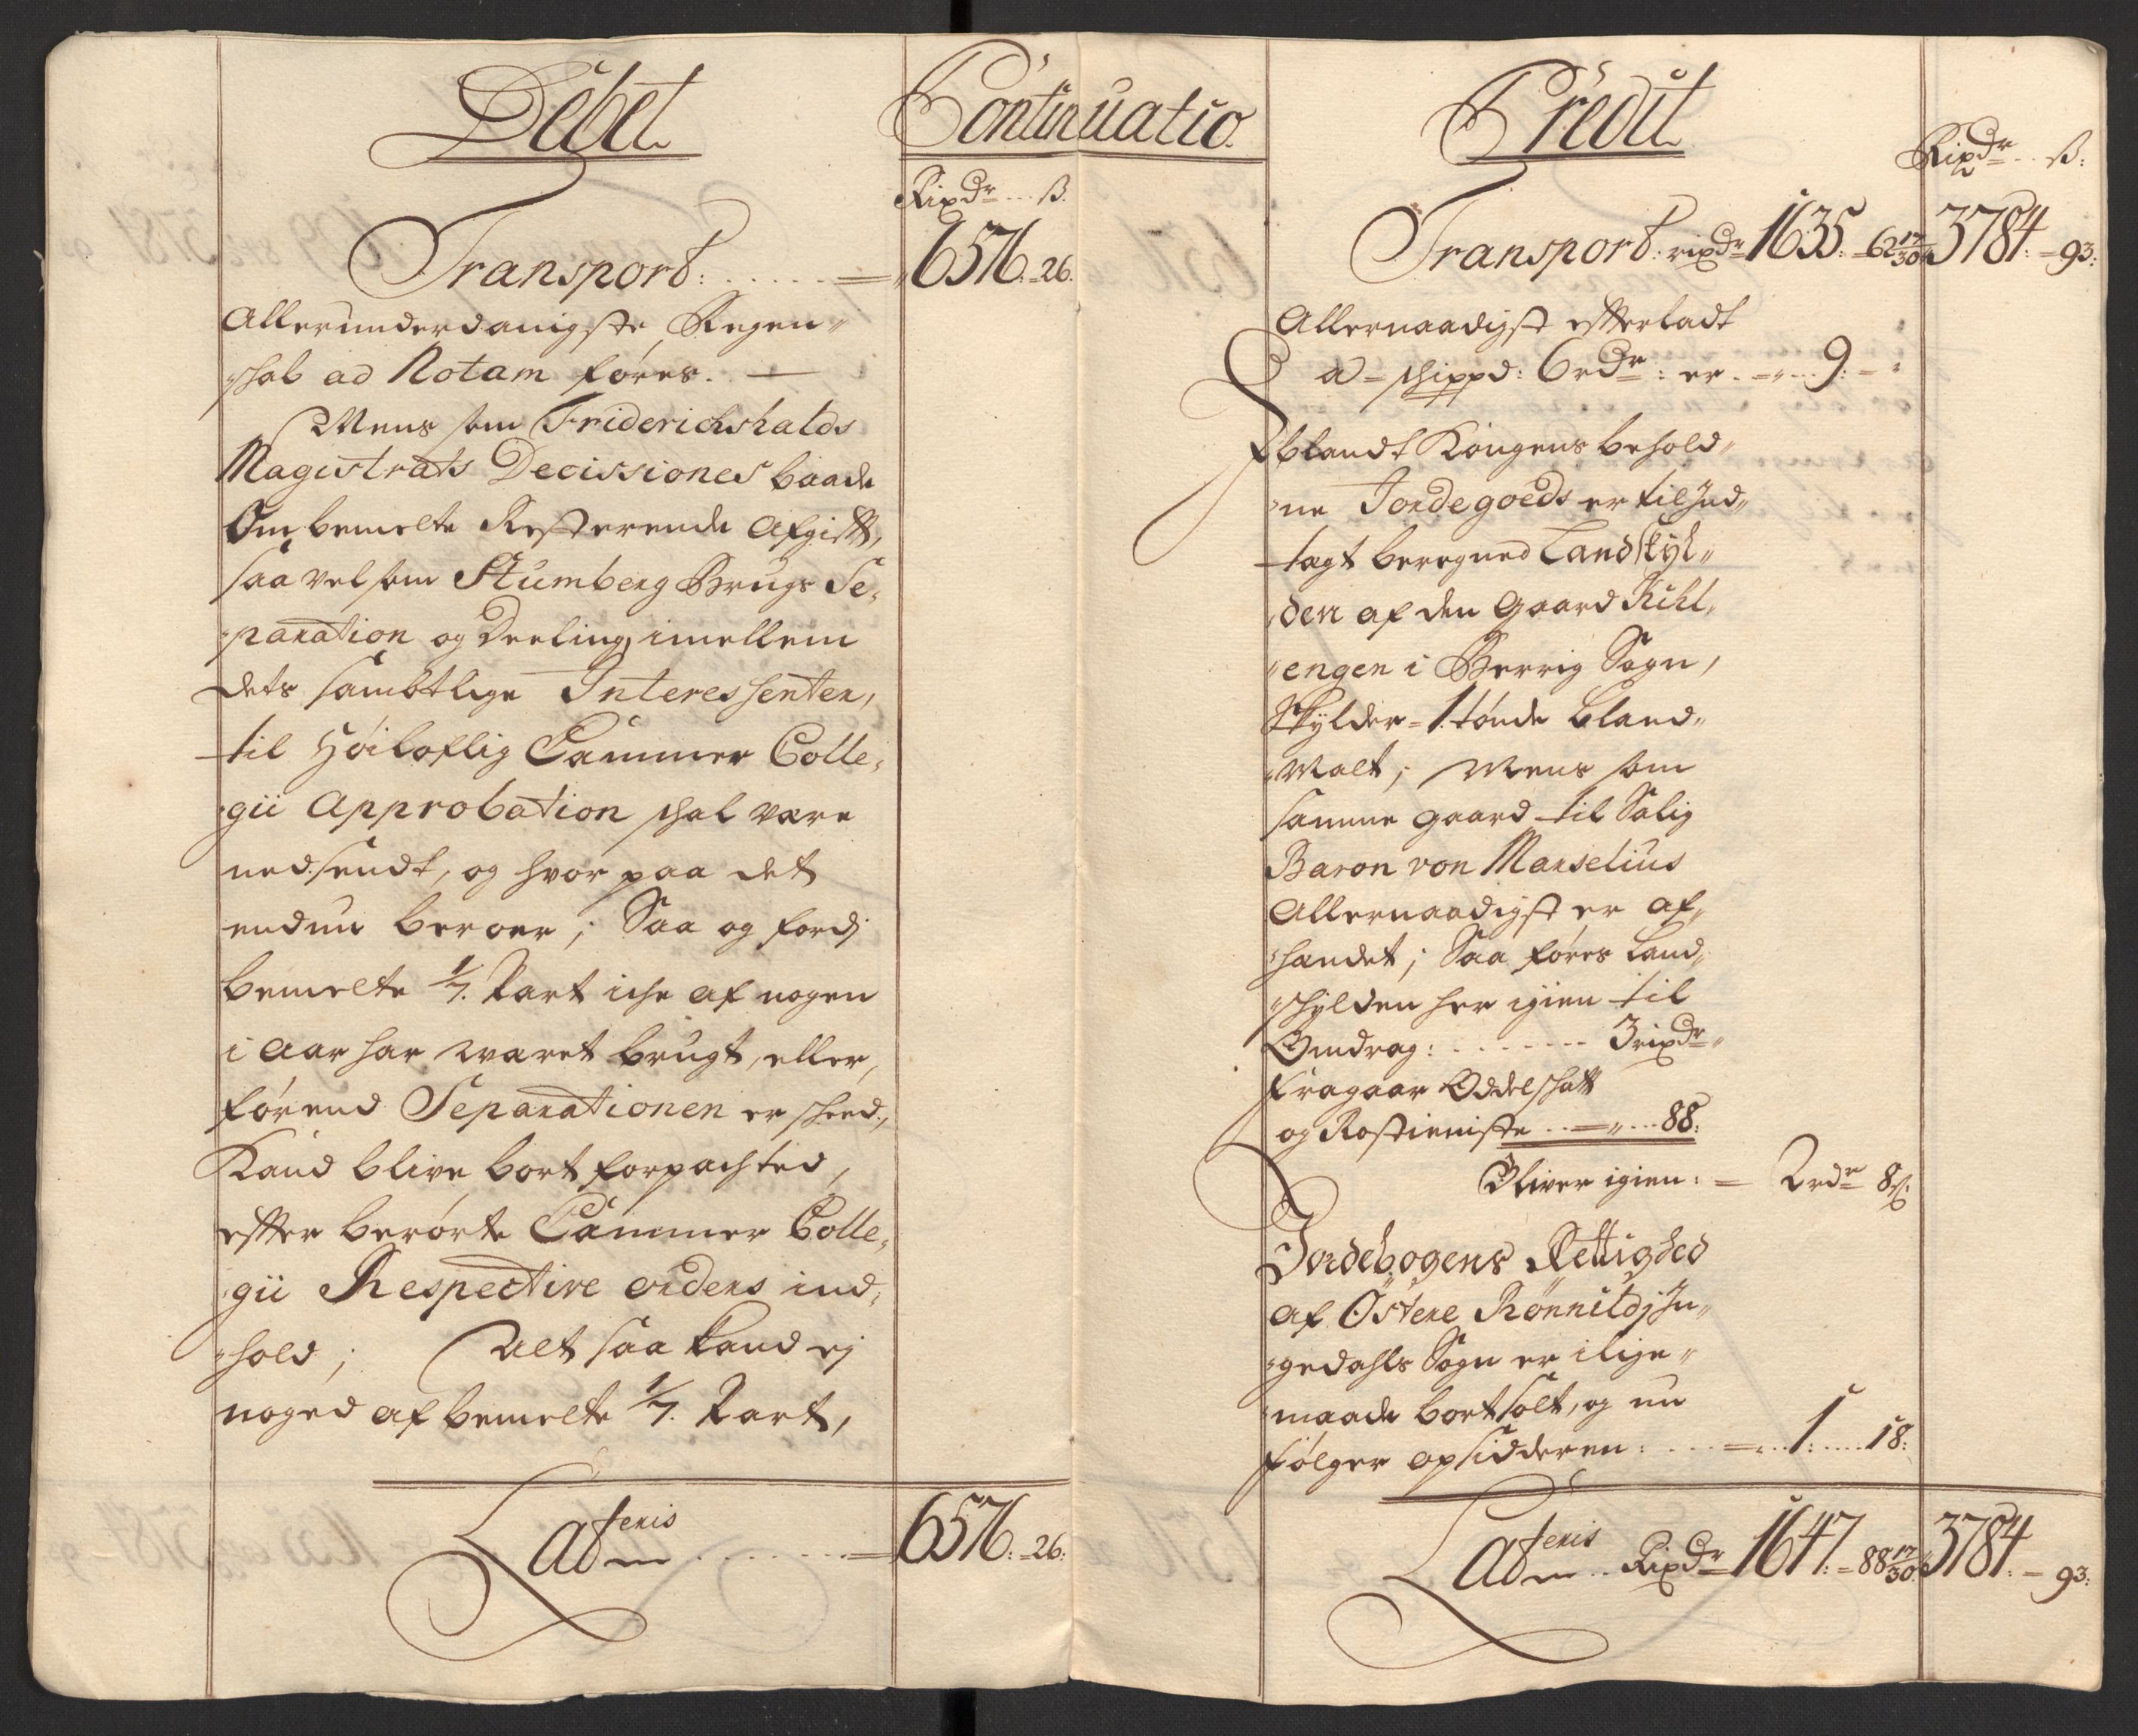 Debet
Continuatio
Rixdr ... ß.
Transport: . . . . . = 6576. = 26.
Allerunderdanigste Regen„
„skab ad Notam føres. —
Mens som Friderichshalds
Magistrats Decissiones baade
Om bemelte Resterende Afgifft,
saa vel som Stumberg Brugs Se„
„paration og Deeling, imellem
dets sambtlige Interessenter,
til Høiloflig Cammer Colle„
„gii Approbation skal være
nedsendt, og hvor paa det
endnu beroer; Saa og fordj
bemelte 1/7. Part iche af nogen
i Aar har været brugt, eller,
førend Separationen er skeed,
Kand blive bort forpachted,
effter berørte Cammer Colle„
„gii Respective orders ind„
„hold; Alt saa kand ej
noged af bemelte 1/7. Part,
Lateris . . . . . . = 6576. = 26:
Credit
Rixdr .. ß:
Transport: rixdr 1635. = 62 17/30 „ 3784. = 93:
Allernaadigst efterladt
a = skippd: 6 rdr: er . = „ .. 9. = „
Jblandt Kongens behold„
„ne Jordegoeds er til Ind„
tægt beregned Landskyl„
„den af den Gaard Kihl„
„engen i Berrig Sogn,
Skylder = 1. tønde bland„
„Malt; Mens som
samme gaard til Salig
Baron von Marselius
Allernaadigst er af„
„handet; Saa føres Land„
„skylden her igien til
Omdrag: . . . . . . . 3 rixdr „
Fragaar Oddelskatt
og Rostieniste . . = „ ... 88:
Bliver igien: = 2 rdr 8 ß:
Jordebogens Rettighed
af Østere Rønnild j In„
„gedahls Sogn er i lige„
„maade bortsolt, og nu
følger opsidderen: . . . = .. 1: .... 18:
Lateris .. Rixdr 1647. = 88 17/30. 3784. = 93: